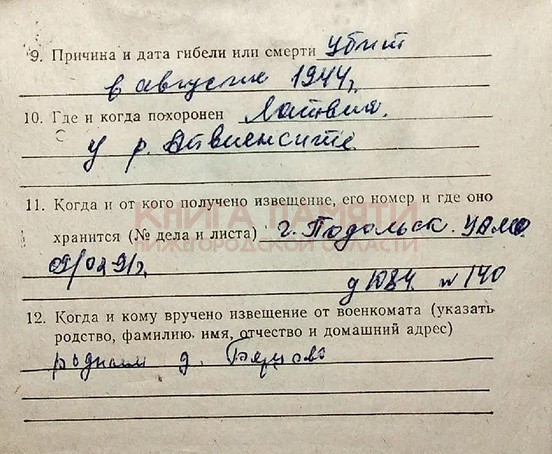 9. Причина и дата гибели или смерти Убит
в августе 1944г.
10. Где и когда похоронен Латвия.
у р.
11. Когда и от кого получено извещение, его номер и где оно
КНИГА ПАМЯТИ
НИЖЕГОРОДСКОЙ ОБЛАСТИ
хранится (№ дела и листа) г. Подольск. ЦАМО
д 1084 п 140
12. Когда и кому вручено извещение от военкомата (указать
родство, фамилию, имя, отчество и домашний адрес)
родным д.